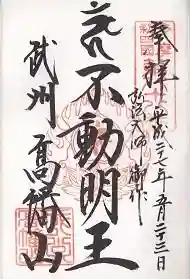 奉拝
平成二十七年五月二十三日
弘法大師御作
不動明王
武州
高幡山